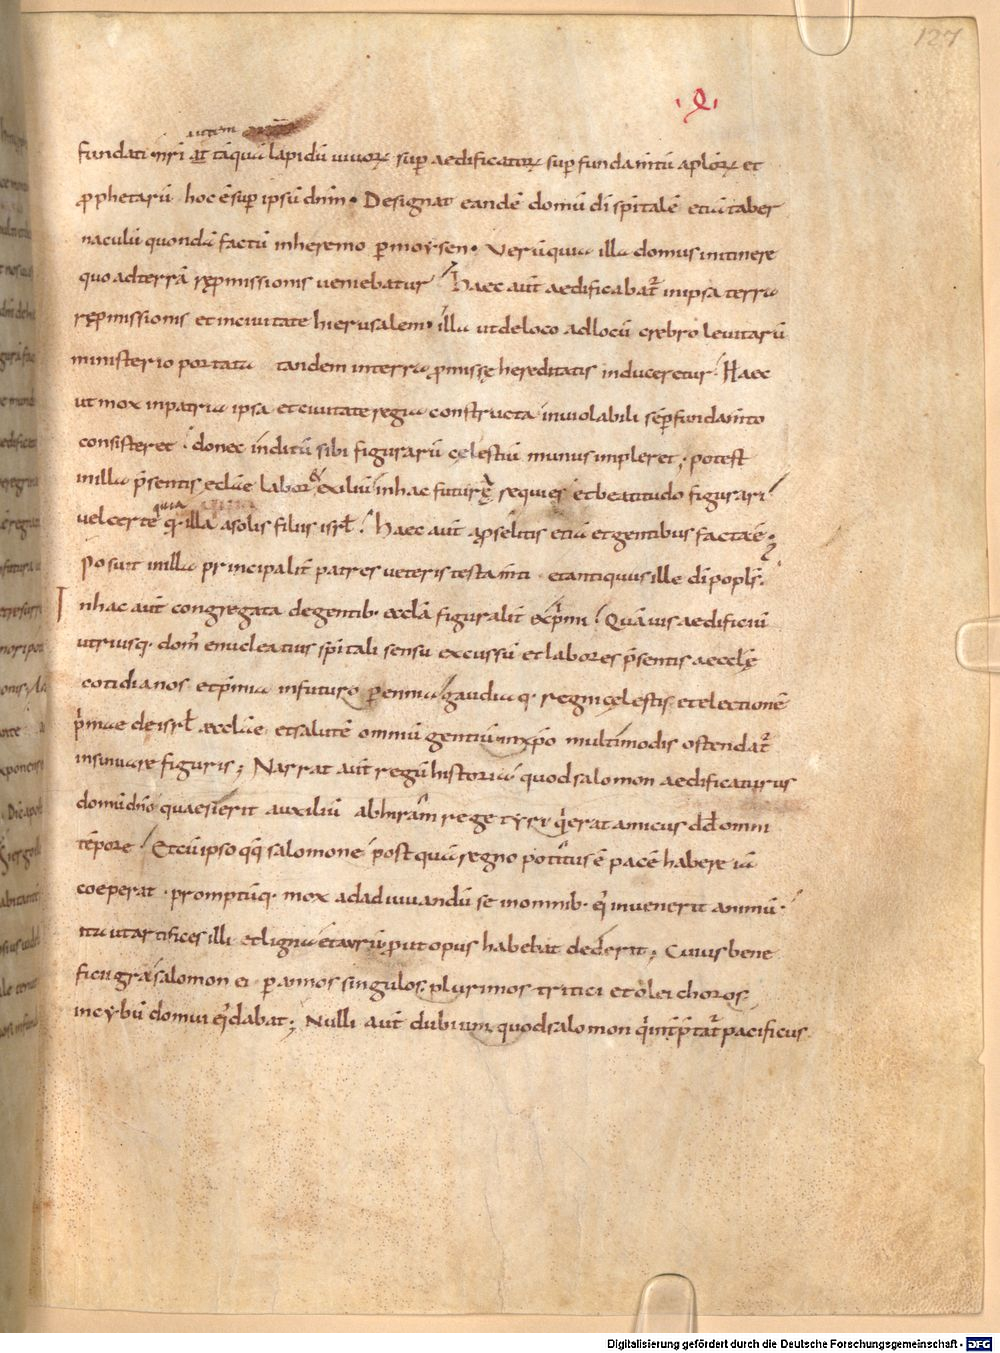 127
·Q·
autem
fundati nri at tāquā lapidū uiuoꝝ sup aedificatoꝝ sup fundamtū aploꝝ et
ꝓphetarū hoc ē sup ipsū dnm. Designat eandē domū di spitalē etiā taber
naculū quondā factū inheremo p moysen. Verū quia illa domus initinere
quo ad terrā repmissionis ueniebatur haec aut aedificabat in ipsa terra
repmissionis et inciuitate hierusalem. illa ut de loco ad locū crebro leuitarū
ministerio portata tandem interra ꝓmissę hereditatis induceretur. Haec
ut mox inpatria ipsa et ciuitate regia constructa inuiolabili sēp fundamto
consisteret. donec inditū sibi figurarū cęlestiū munus impleret; potest
inilla p̄sentis ecclae labor & exiliū inhac futurę requies et beatitudo figurari.
quia
uel certe qr illa a solis filiis isrl. haec aut a pselitis etiā et gentibus facta ē.
Possunt inilla principalit patres ueteris testamti et antiquus ille di popls.
Inhac aut congregata de gentib. eccla figuralit exp̄mi. Quāuis aedificiū
utriusq. dom enucleatius spitali sensu excussū et labores p̄sentis aecclę
cotidianos et p̄mia infuturo perennia gaudiaq. regni cęlestis et electionē
p̄mae de isrl aecclae et salutē omniū gentiū inxpo multimodis ostendat
insinuare figuris; Narrat aut regū historia quod salomon aedificaturus
domū dno quaesierit auxiliū ab hiram rege tyri q̄ erat amicus dd omni
tēpore. Et cū ipso qq salomone postquā regno potitus ē pacē habere iā
coeperat. promptūq. mox ad adiuuandū se inomnib. ei inuenerit animū.
ita ut artifices illi et ligna et aurū put opus habebat dederit; Cuius bene
ficii gra salomon ei p annos singulos plurimos tritici et olei choros
incybū domui ei dabat; Nulli aut dubium quod salomon q̄ intptat pacificus
Digitalisierung gefördert durch die Deutsche Forschungsgemeinschaft - DFG